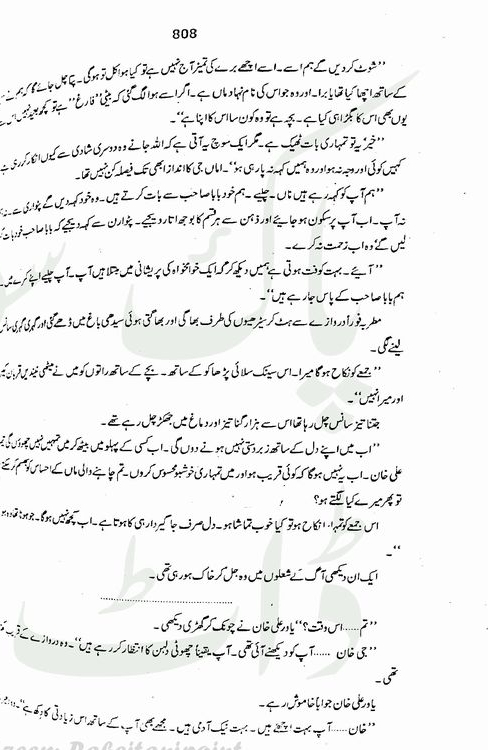 808
’’شوٹ کر دیں گے ہم اسے۔ اسے اچھے برے کی تمیز آج نہیں ہے تو کیا ہوا کل تو ہوگی۔ پتا چل جائے گا کہ ہم نے
کے ساتھ اچھا کیا تھا یا برا۔ اور وہ جو اس کی نام نہاد ماں ہے۔ اگر اسے ہوا لگ گئی کہ بیٹی ’’فارغ‘‘ ہے تو کچھ بعید نہیں
یوں بھی اس کا بگڑا ہی کیا ہے۔ بچہ ہے تو وہ کون سا اس کا اپنا ہے‘‘۔
’’خیر یہ تو تمہاری بات ٹھیک ہے۔ مگر ایک سوچ یہ آتی ہے کہ اللہ جانے وہ دوسری شادی سے کیوں انکار کر رہی ہے
کہیں کوئی اور وجہ نہ ہو اور وہ ہمیں کہہ نہ پا رہی ہو‘‘۔ اماں جی کا انداز ابھی تک فیصلہ کن نہیں تھا۔
’’ہم آپ کو کہہ رہے ہیں ناں۔ چلیے۔ ہم خود بابا صاحب سے بات کرتے ہیں۔ وہ خود کہہ دیں گے پٹواری سے۔
نہ آپ۔ اب آپ پرسکون ہو جائیے اور ذہن سے ہر قسم کا بوجھ اتار دیجیے۔ پٹوارن سے کہہ دیجیے کہ بابا صاحب خود بات
لیں گے وہ اب زحمت نہ کرے۔
’’آئیے۔ بہت کوفت ہوتی ہے ہمیں دیکھ کر کہ ایک خوامخواہ کی پریشانی میں مبتلا ہیں آپ۔ آپ چلیے اپنے کمرے میں۔
ہم بابا صاحب کے پاس جا رہے ہیں‘‘۔
مطربہ فوراً دروازے سے ہٹ کر سیڑھیوں کی طرف بھاگی اور بھاگتی ہوئی سیدھی باغ میں ڈھے گئی اور گہری گہری سانس
لینے لگی۔
’’جمعے کو نکاح ہوگا میرا۔ اس سینک سلائی پڑھا کو کے ساتھ۔ بچے کے ساتھ راتوں کو میں نے میٹھی نیندیں قربان کیں
اور میرا نہیں‘‘۔
جتنا تیز سانس چل رہا تھا اس سے ہزار گنا تیز اور دماغ میں جھکڑ چل رہے تھے۔
’’اب میں اپنے دل کے ساتھ زبردستی نہیں ہونے دوں گی۔ اب کسی کے پہلو میں بیٹھ کر میں تمہیں نہیں
علی خان۔ اب یہ نہیں ہوگا کہ کوئی قریب ہو اور میں تمہاری خوشبو محسوس کروں۔ تم چاہنے والی ماں کے احساس کو
تو پھر میرے کیا لگتے ہو؟
اس جمعے کو نکاح ہو تو کیا خوب تماشا ہو۔ دل صرف جاگیردار ہی کا ہوتا ہے۔ اب کچھ نہیں ہوگا۔
‘‘۔
ایک ان دیکھی آگ کے شعلوں میں وہ جل کر خاک ہو رہی تھی۔
’’تم...... اس وقت؟‘‘ یاور علی خان نے چونک کر گھڑی دیکھی۔
’’جی خان ...... آپ کو دیکھنے آئی تھی۔ آپ یقیناً چھوٹی دلہن کا انتظار کر رہے ہیں‘‘۔ وہ دروازے کے قریب
تھی۔
یاور علی خان جواباً خاموش رہے۔
’’خان...... آپ بہت اچھے ہیں۔ بہت نیک آدمی ہیں۔ مجھے بھی آپ کے ساتھ اس زیادتی کا دکھ ہے‘‘۔